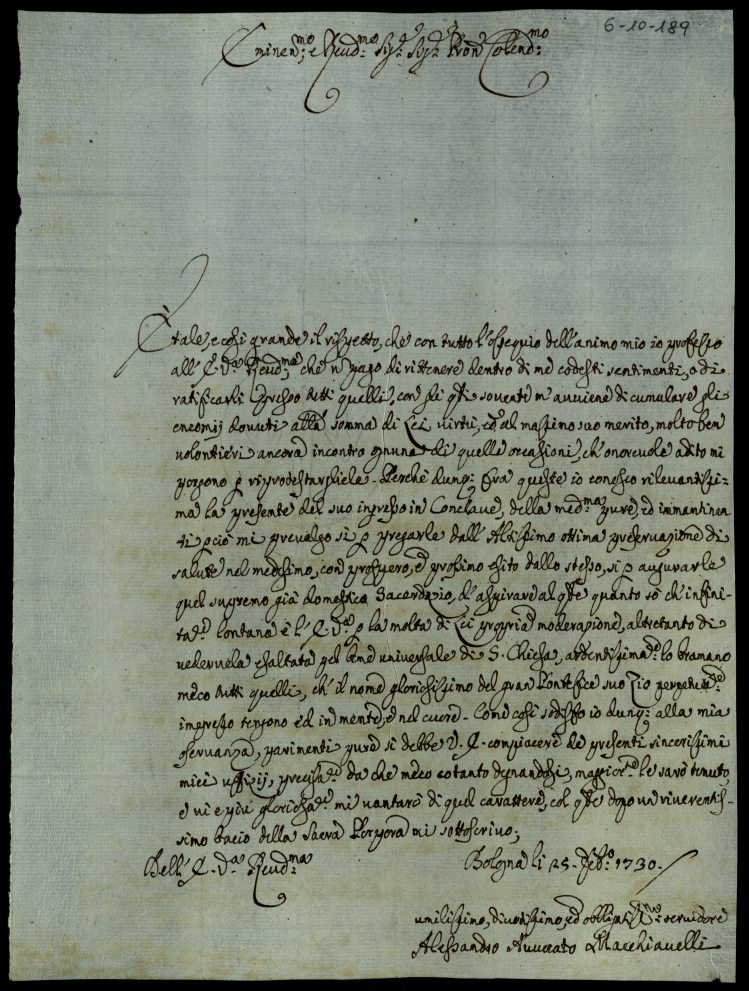 6-10-189
Eminen:mo e Reud:mo Sig:r Sig:r Pron Colend:mo
È tale, e così grande il rispetto, che con tutto l'ossequio dell'animo mio io professo
all'E. V.a Reud:ma, che n pago di rittenere dentro di me codesti sentimenti, o di
ratificarli appresso tutti quelli, con li qti souente m'auuiene di cumulare gli
encomij douuti alla somma di Lei uirtù, ed al massimo suo merito, molto ben
uolontieri ancora incontro ognuna di quelle occasioni, ch'onoreuole adito mi
porgono p riprotestargliele. Perchè dunq: fra queste io conosco rileuantissi=
ma la presente del suo ingresso in Conclaue, della med:ma pure, ed immantinen
ti pciò mi preualgo sì p pregarle dall'Altissimo ottima preseruazione di
salute nel medesimo, con prospero, e prossimo esito dallo stesso, sì p augurarle
quel supremo già domestico Sacerdozio, d'aspirare al qle quanto sò ch'infini=
tam:te lontana è l'E. V.a p la molta di Lei propria moderazione, altretanto di
uederuela esaltata pel bene uniuersale di S. Chiesa, ardentissimam:te lo bramano
meco tutti quelli, ch'il nome gloriosissimo del gran Pontefice suo Zio
impresso tengono ed in mente, e nel cuore. Come così sodisfo io dunq: alla mia
osseruanza, parimenti pure si debbe V. E. compiacere de presenti sincerissimi
miei uffizij, precisam:te da che meco cotanto degnandosi, maggiorm:te le sarò tenuto,
e uie più gloriosam:te mi uantarò di quel carattere, col qle dopo un riuerentis=
simo bacio della Sacra Porpora mi sottoscriuo;
Dell'E. V.a Reud:ma Bologna li 25. Feb:o 1730.
umilissimo, diuotissimo, ed obbligat:mo seruidore
Alessandro Auuocato Macchiauelli